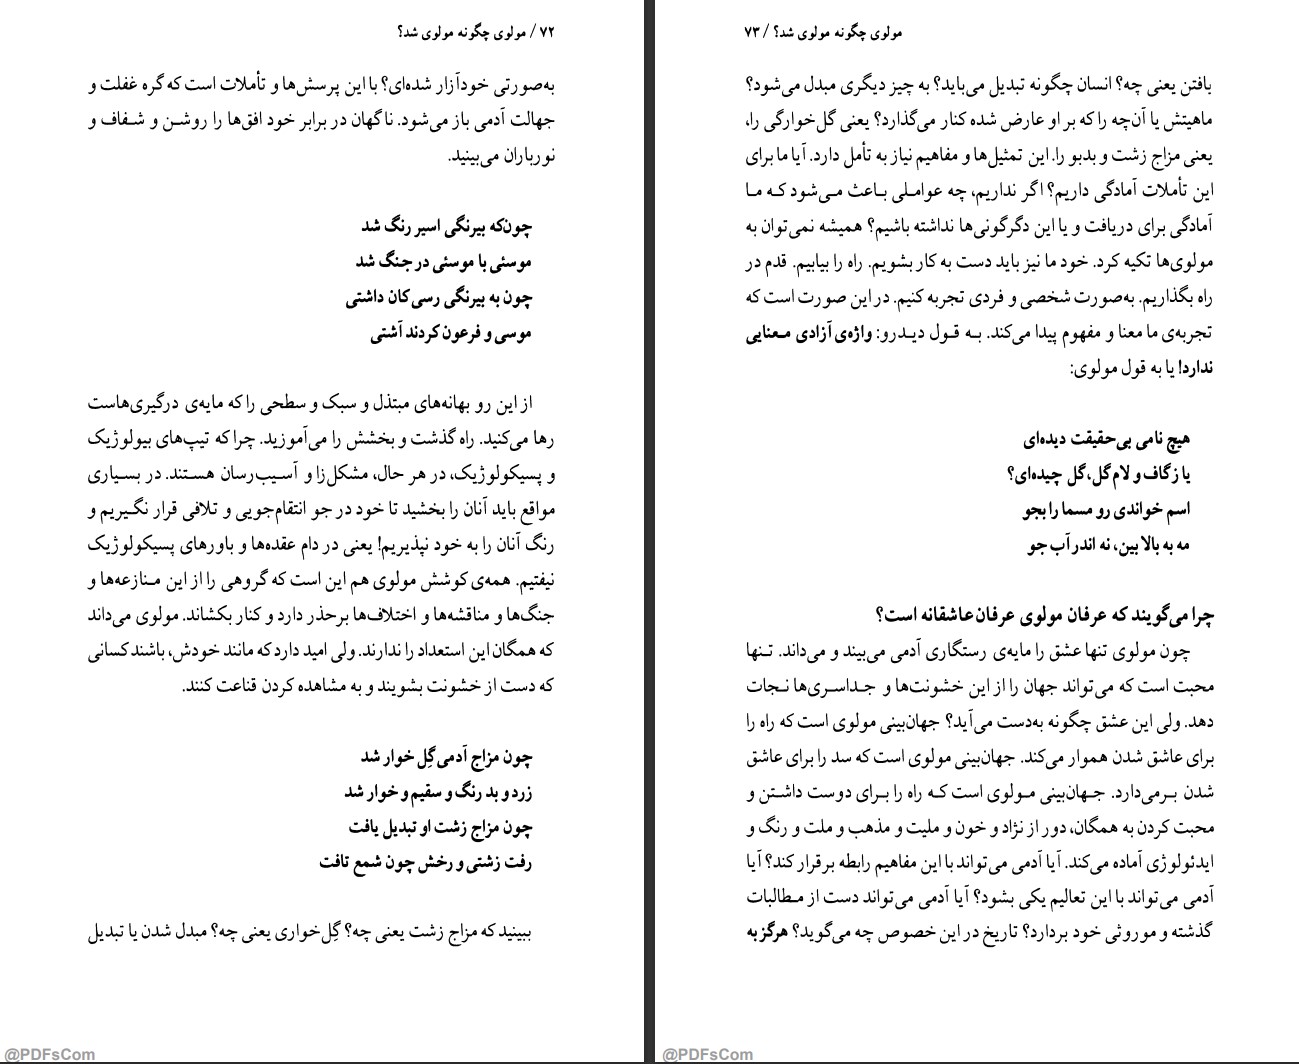 ۷۲ / مولوی چگونه مولوی شد؟
به‌صورتی خودآزار شده‌ای؟ با این پرسش‌ها و تأملات است که گره غفلت و
جهالت آدمی باز می‌شود. ناگهان در برابر خود افق‌ها را روشن و شفاف و
نورباران می‌بینید.
چون‌که بیرنگی اسیر رنگ شد
موسئی با موسئی در جنگ شد
چون به بیرنگی رسی کان داشتی
موسی و فرعون کردند آشتی
از این رو بهانه‌های مبتذل و سبک و سطحی را که مایه‌ی درگیری‌هاست
رها می‌کنید. راه گذشت و بخشش را می‌آموزید. چرا که تیپ‌های بیولوژیک
و پسیکولوژیک، در هر حال، مشکل‌زا و آسیب‌رسان هستند. در بسیاری
مواقع باید آنان را بخشید تا خود در جو انتقام‌جویی و تلافی قرار نگیریم و
رنگ آنان را به خود نپذیریم! یعنی در دام عقده‌ها و باورهای پسیکولوژیک
نیفتیم. همه‌ی کوشش مولوی هم این است که گروهی را از این منازعه‌ها و
جنگ‌ها و مناقشه‌ها و اختلاف‌ها برحذر دارد و کنار بکشاند. مولوی می‌داند
که همگان این استعداد را ندارند. ولی امید دارد که مانند خودش، باشند کسانی
که دست از خشونت بشویند و به مشاهده کردن قناعت کنند.
چون مزاج آدمی گِل خوار شد
زرد و بد رنگ و سقیم و خوار شد
چون مزاج زشت او تبدیل یافت
رفت زشتی و رخش چون شمع تافت
ببینید که مزاج زشت یعنی چه؟ گِل‌خواری یعنی چه؟ مبدل شدن یا تبدیل
@PDFsCom
مولوی چگونه مولوی شد؟ / ۷۳
یافتن یعنی چه؟ انسان چگونه تبدیل می‌یابد؟ به چیز دیگری مبدل می‌شود؟
ماهیتش یا آن‌چه را که بر او عارض شده کنار می‌گذارد؟ یعنی گل‌خوارگی را،
یعنی مزاج زشت و بدبو را. این تمثیل‌ها و مفاهیم نیاز به تأمل دارد. آیا ما برای
این تأملات آمادگی داریم؟ اگر نداریم، چه عواملی باعث می‌شود که ما
آمادگی برای دریافت و یا این دگرگونی‌ها نداشته باشیم؟ همیشه نمی‌توان به
مولوی‌ها تکیه کرد. خود ما نیز باید دست به کار بشویم. راه را بیابیم. قدم در
راه بگذاریم. به‌صورت شخصی و فردی تجربه کنیم. در این صورت است که
تجربه‌ی ما معنا و مفهوم پیدا می‌کند. به قول دیدرو: واژه‌ی آزادی معنایی
ندارد! یا به قول مولوی:
هیچ نامی بی‌حقیقت دیده‌ای
یا زگاف و لام گل، گل چیده‌ای؟
اسم خواندی رو مسما را بجو
مه به بالا بین، نه اندر آب جو
چرا می‌گویند که عرفان مولوی عرفان عاشقانه است؟
چون مولوی تنها عشق را مایه‌ی رستگاری آدمی می‌بیند و می‌داند. تنها
محبت است که می‌تواند جهان را از این خشونت‌ها و جداسری‌ها نجات
دهد. ولی این عشق چگونه به‌دست می‌آید؟ جهان‌بینی مولوی است که راه را
برای عاشق شدن هموار می‌کند. جهان‌بینی مولوی است که سد را برای عاشق
شدن برمی‌دارد. جهان‌بینی مولوی است که راه را برای دوست داشتن و
محبت کردن به همگان، دور از نژاد و خون و ملیت و مذهب و ملت و رنگ و
ایدئولوژی آماده می‌کند. آیا آدمی می‌تواند با این مفاهیم رابطه برقرار کند؟ آیا
آدمی می‌تواند با این تعالیم یکی بشود؟ آیا آدمی می‌تواند دست از مطالبات
گذشته و موروثی خود بردارد؟ تاریخ در این خصوص چه می‌گوید؟ هرگز به
@PDFsCom